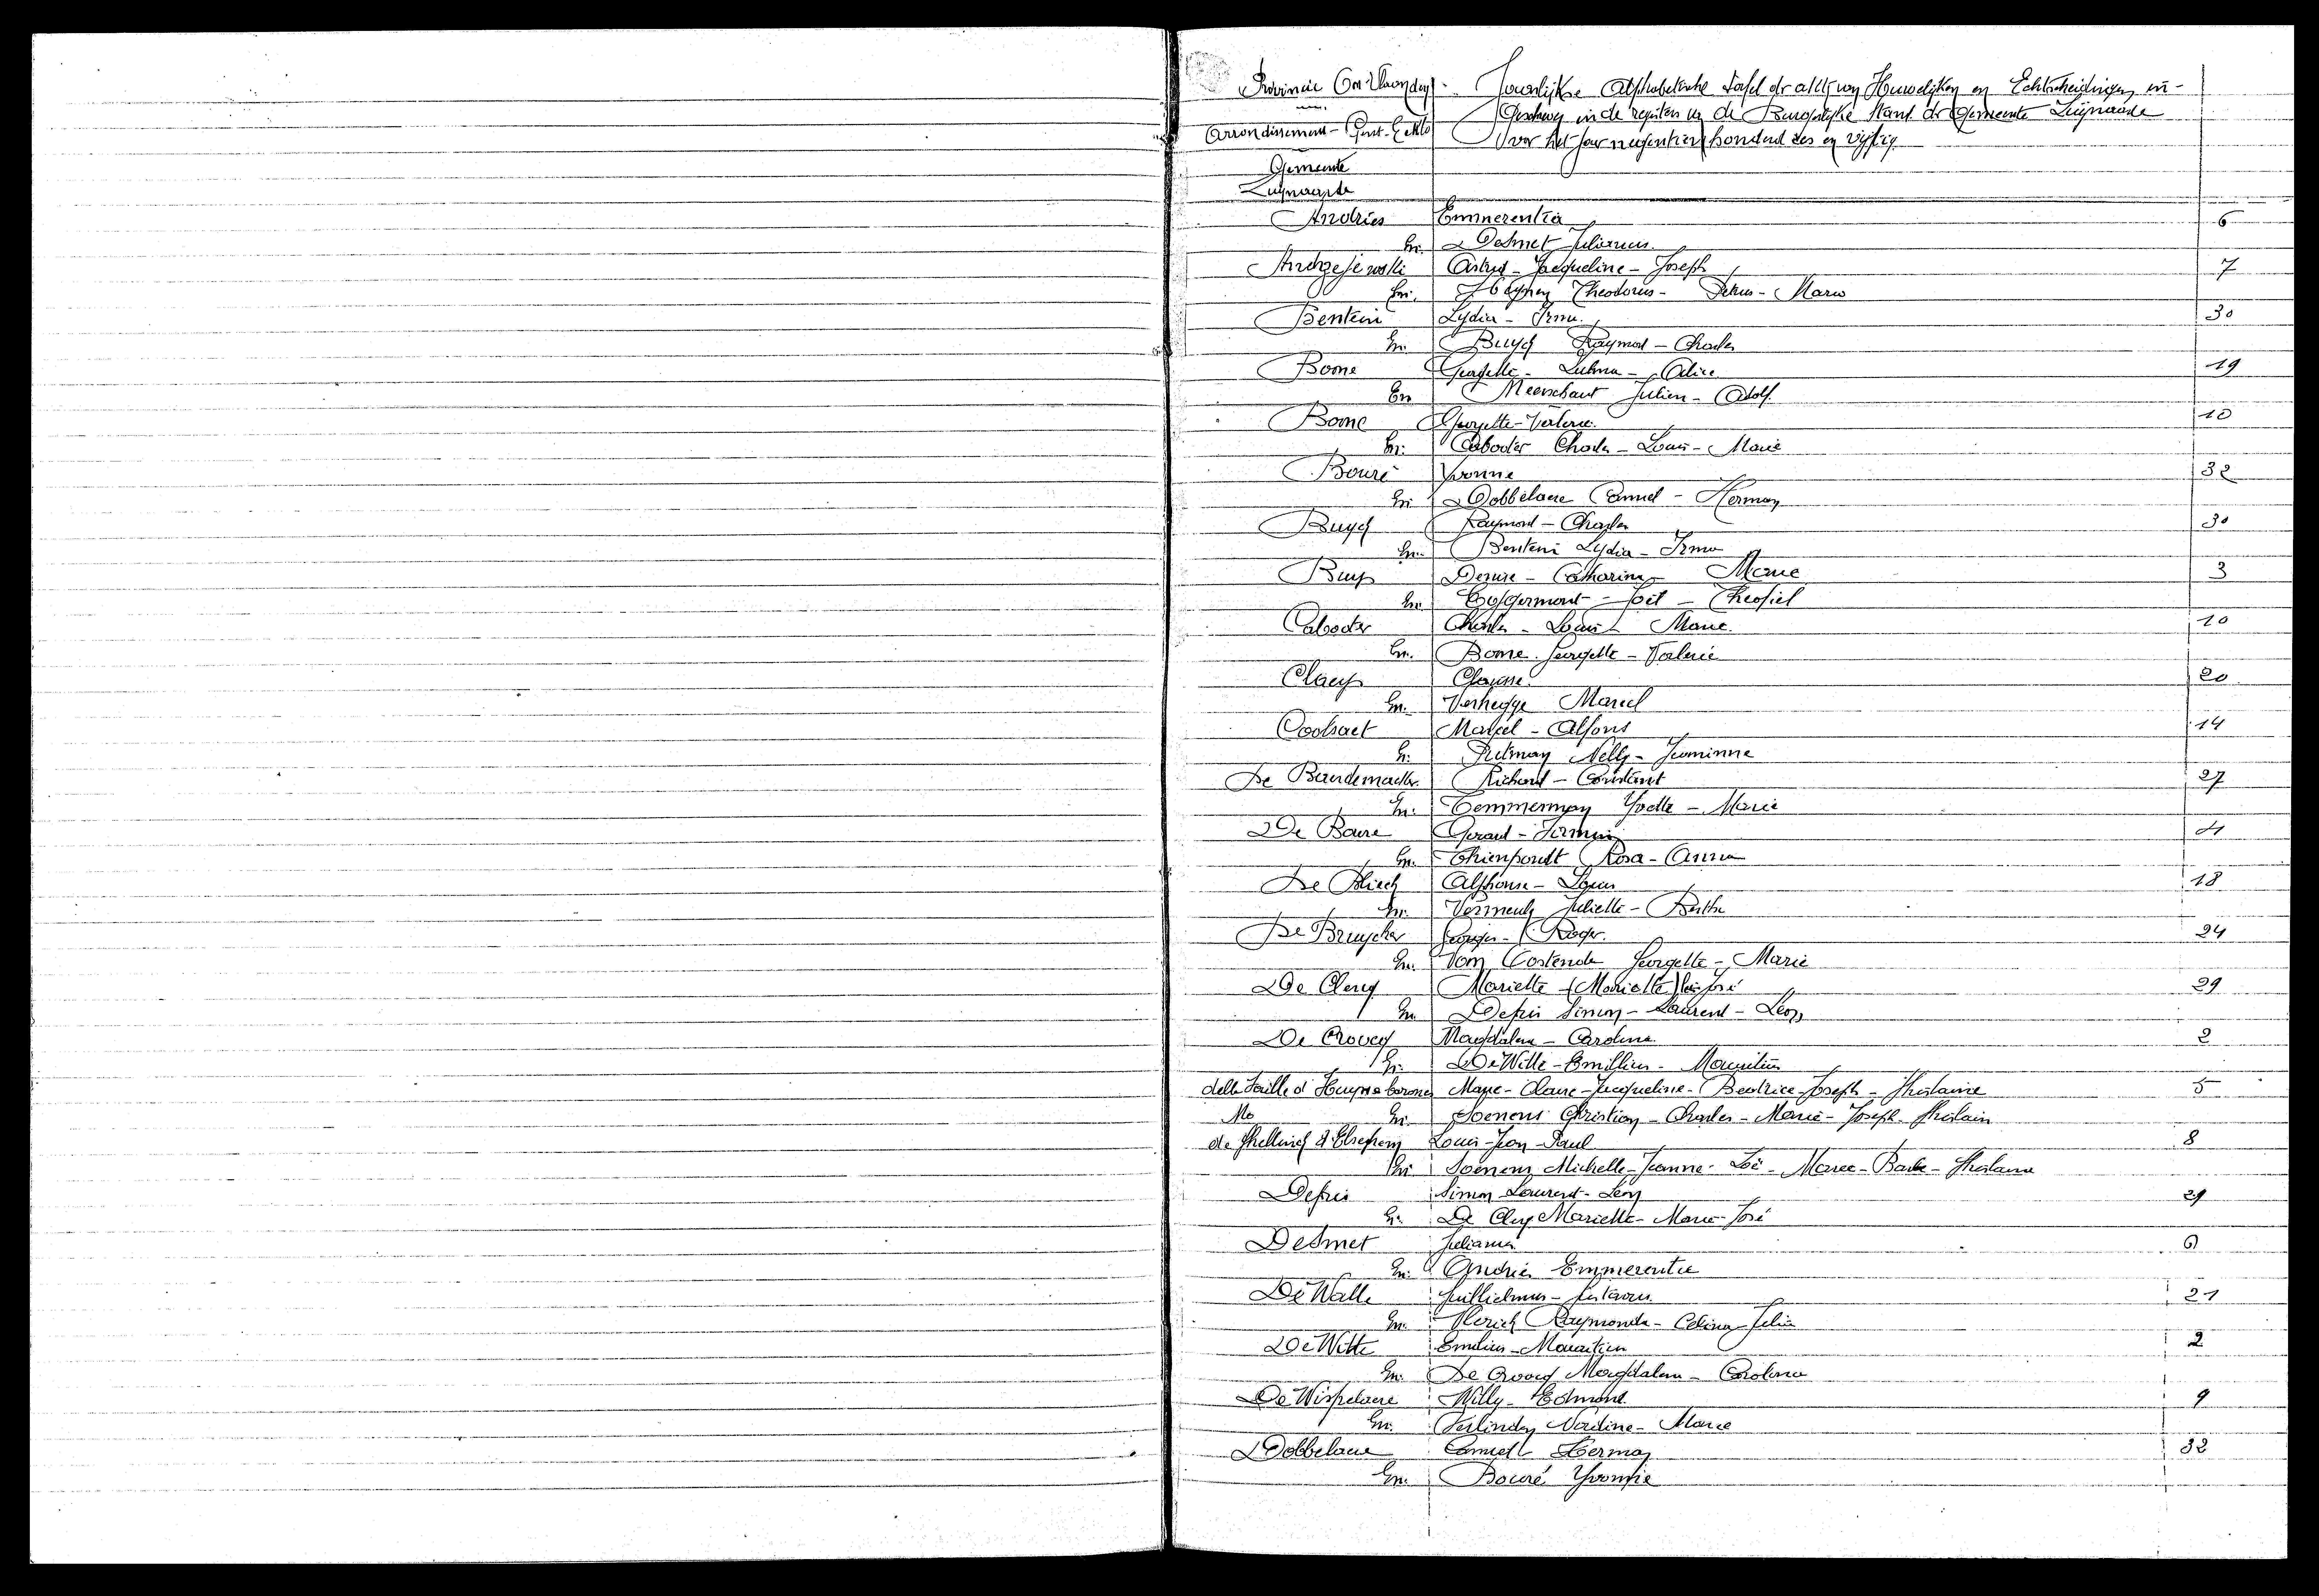 Provincie Oost-Vlaanderen - Jaarlijkse Alphabetische tafel der akten van Huwelijken en Echtscheidingen in-
geschreven in de registers van de Burgerlijke Stand der Gemeente Zwijnaarde
Arrondissement - Gent-Eeklo
voor het jaar negentien honderd zes en vijftig
Gemeente
Zwijnaarde
Andries Emmerentia 6
En. Desmet Julianus
Andrzejewski Astrid - Jacqueline - Joseph 7
En. Theodorus - Petrus - Maria
Benteni Lydia - Irma 30
En. Buyck Raymond - Charles
Boone Georgette - Zulma - Alice 19
En Meerschaut Julien - Adolf
Boone Georgette - Valerie 10
En. Cabooter Charles - Louis - Marie
Bouré Yvonne 32
En Dobbelaere Camiel - Herman
Buyck Raymond - Charles 30
En. Benteni Lydia - Irma
Buys Desire - Catharina - Marie 3
En. Eggermont - Joël - Theofiel
Cabooter Charles - Louis - Marie 10
En. Boone Georgette - Valerie
Claeys 20
En. Verhegge Marcel
Coolsaet Marcel - Alfons 14
En. Putman Nelly - Jeannine
De Baerdemaeker Richard - Constant 27
En. Temmerman Yvette - Marie
De Baere Gerard - Firmin 4
En. Thienpondt Rosa - Anna
De Blieck Alphonse - Louis 18
En. Vermeulen Juliette - Bertha
De Bruycker Georges - Roger 24
En. Van Oostende Georgette - Marie
De Clercq Mariette - (Mariette) José 29
En. Defris Simon - Laurent - Leon
De Croocq Magdalena - Carolina 2
En. De Witte - Emilius - Mauritius
della Faille d'Huysse barones Marie - Claire - Jacqueline - Beatrice - Joseph - Ghislaine 5
En. Soenens Christian - Charles - Marie - Joseph - Ghislain
de Ghellinck d'Elseghem Louis - Jean - Paul 8
En Soenens Michelle - Jeanne - Zoë - Marie - Barbe - Ghislaine
Defris Simon - Laurent - Leon 29
En. De Clercq Mariette - Marie - José
Desmet Julianus 6
En. Andries Emmerentia
De Walle Guillielmus - Gustavus 21
En. Raymonda - Celina - Julia
De Witte Emilius - Mauritius 2
En. De Croocq Magdalena - Carolina
De Wispelaere Willy - Edmond 9
En. Verlinden Nadine - Marie
Dobbelaere Camiel Herman 32
En. Bouré Yvonne